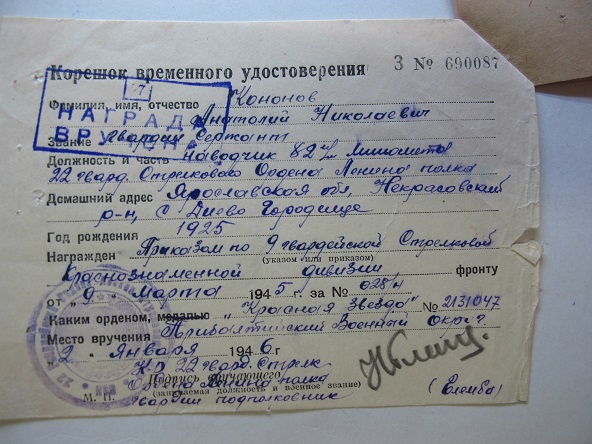 Корешок временного удостоверения З № 690087
Фамилия, имя, отчество Кононов
Анатолий Николаевич
Звание гвардии Сержант
Должность и часть наводчик 82 м/м Миномета
22 гвард. Стрелкового Ордена Ленина полка
Домашний адрес Ярославская обл, Некрасовский
р-н, С Диево Городище
Год рождения 1925
Награжден Приказом по 9 гвардейской Стрелковой
(указом или приказом)
Краснознаменной дивизии фронту
от „ 9 „ Марта 1945 г. за № 028/н
Каким орденом, медалью „Красная Звезда" № 2131047
Место вручения Прибалтийский Военный округ
„ 2 „ Января 1946 г.
К-р 22 гвард. Стрелк
Подпись вручающего
Ордена Ленина полка
(занимаемая должность и военное звание)
М. П. гвардии подполковник
НАГРАДА
ВРУЧЕНА